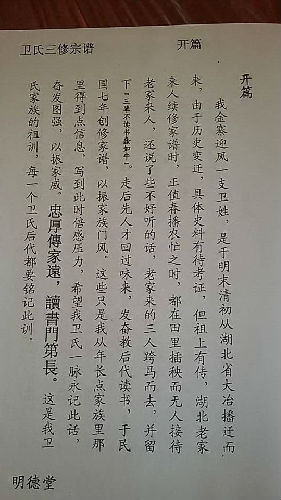 卫氏三修宗谱
开篇
开篇
我金寨迎风一支卫姓,是于明末清初从湖北省大冶播迁而
来,由于历史变迁,具体史料有待考证,但祖上有传,湖北老家
来人续修家谱时,正值春播农忙之时,都在田里插秧而无人接待
老家来人,还说了些不好听的话,老家来的三人跨马而去,并留
走后先人才回过味来,发奋教后代读书,于民
国七年创修家谱,以振家族门风。这些只是我从年长点家族里那
里得到点信息,写到此时倍感压力,希望我卫氏一脉永记此话,
奋发图强,以振家威。忠厚傳家遠,讀書門第長。这是我卫
氏家族的祖训,每一个卫氏后代都要铭记此训。
明德堂